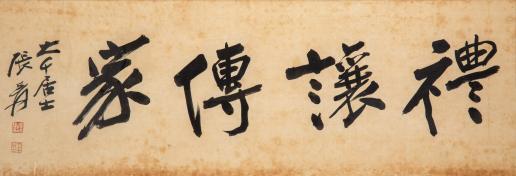 禮讓傳家
大千居士
張爰